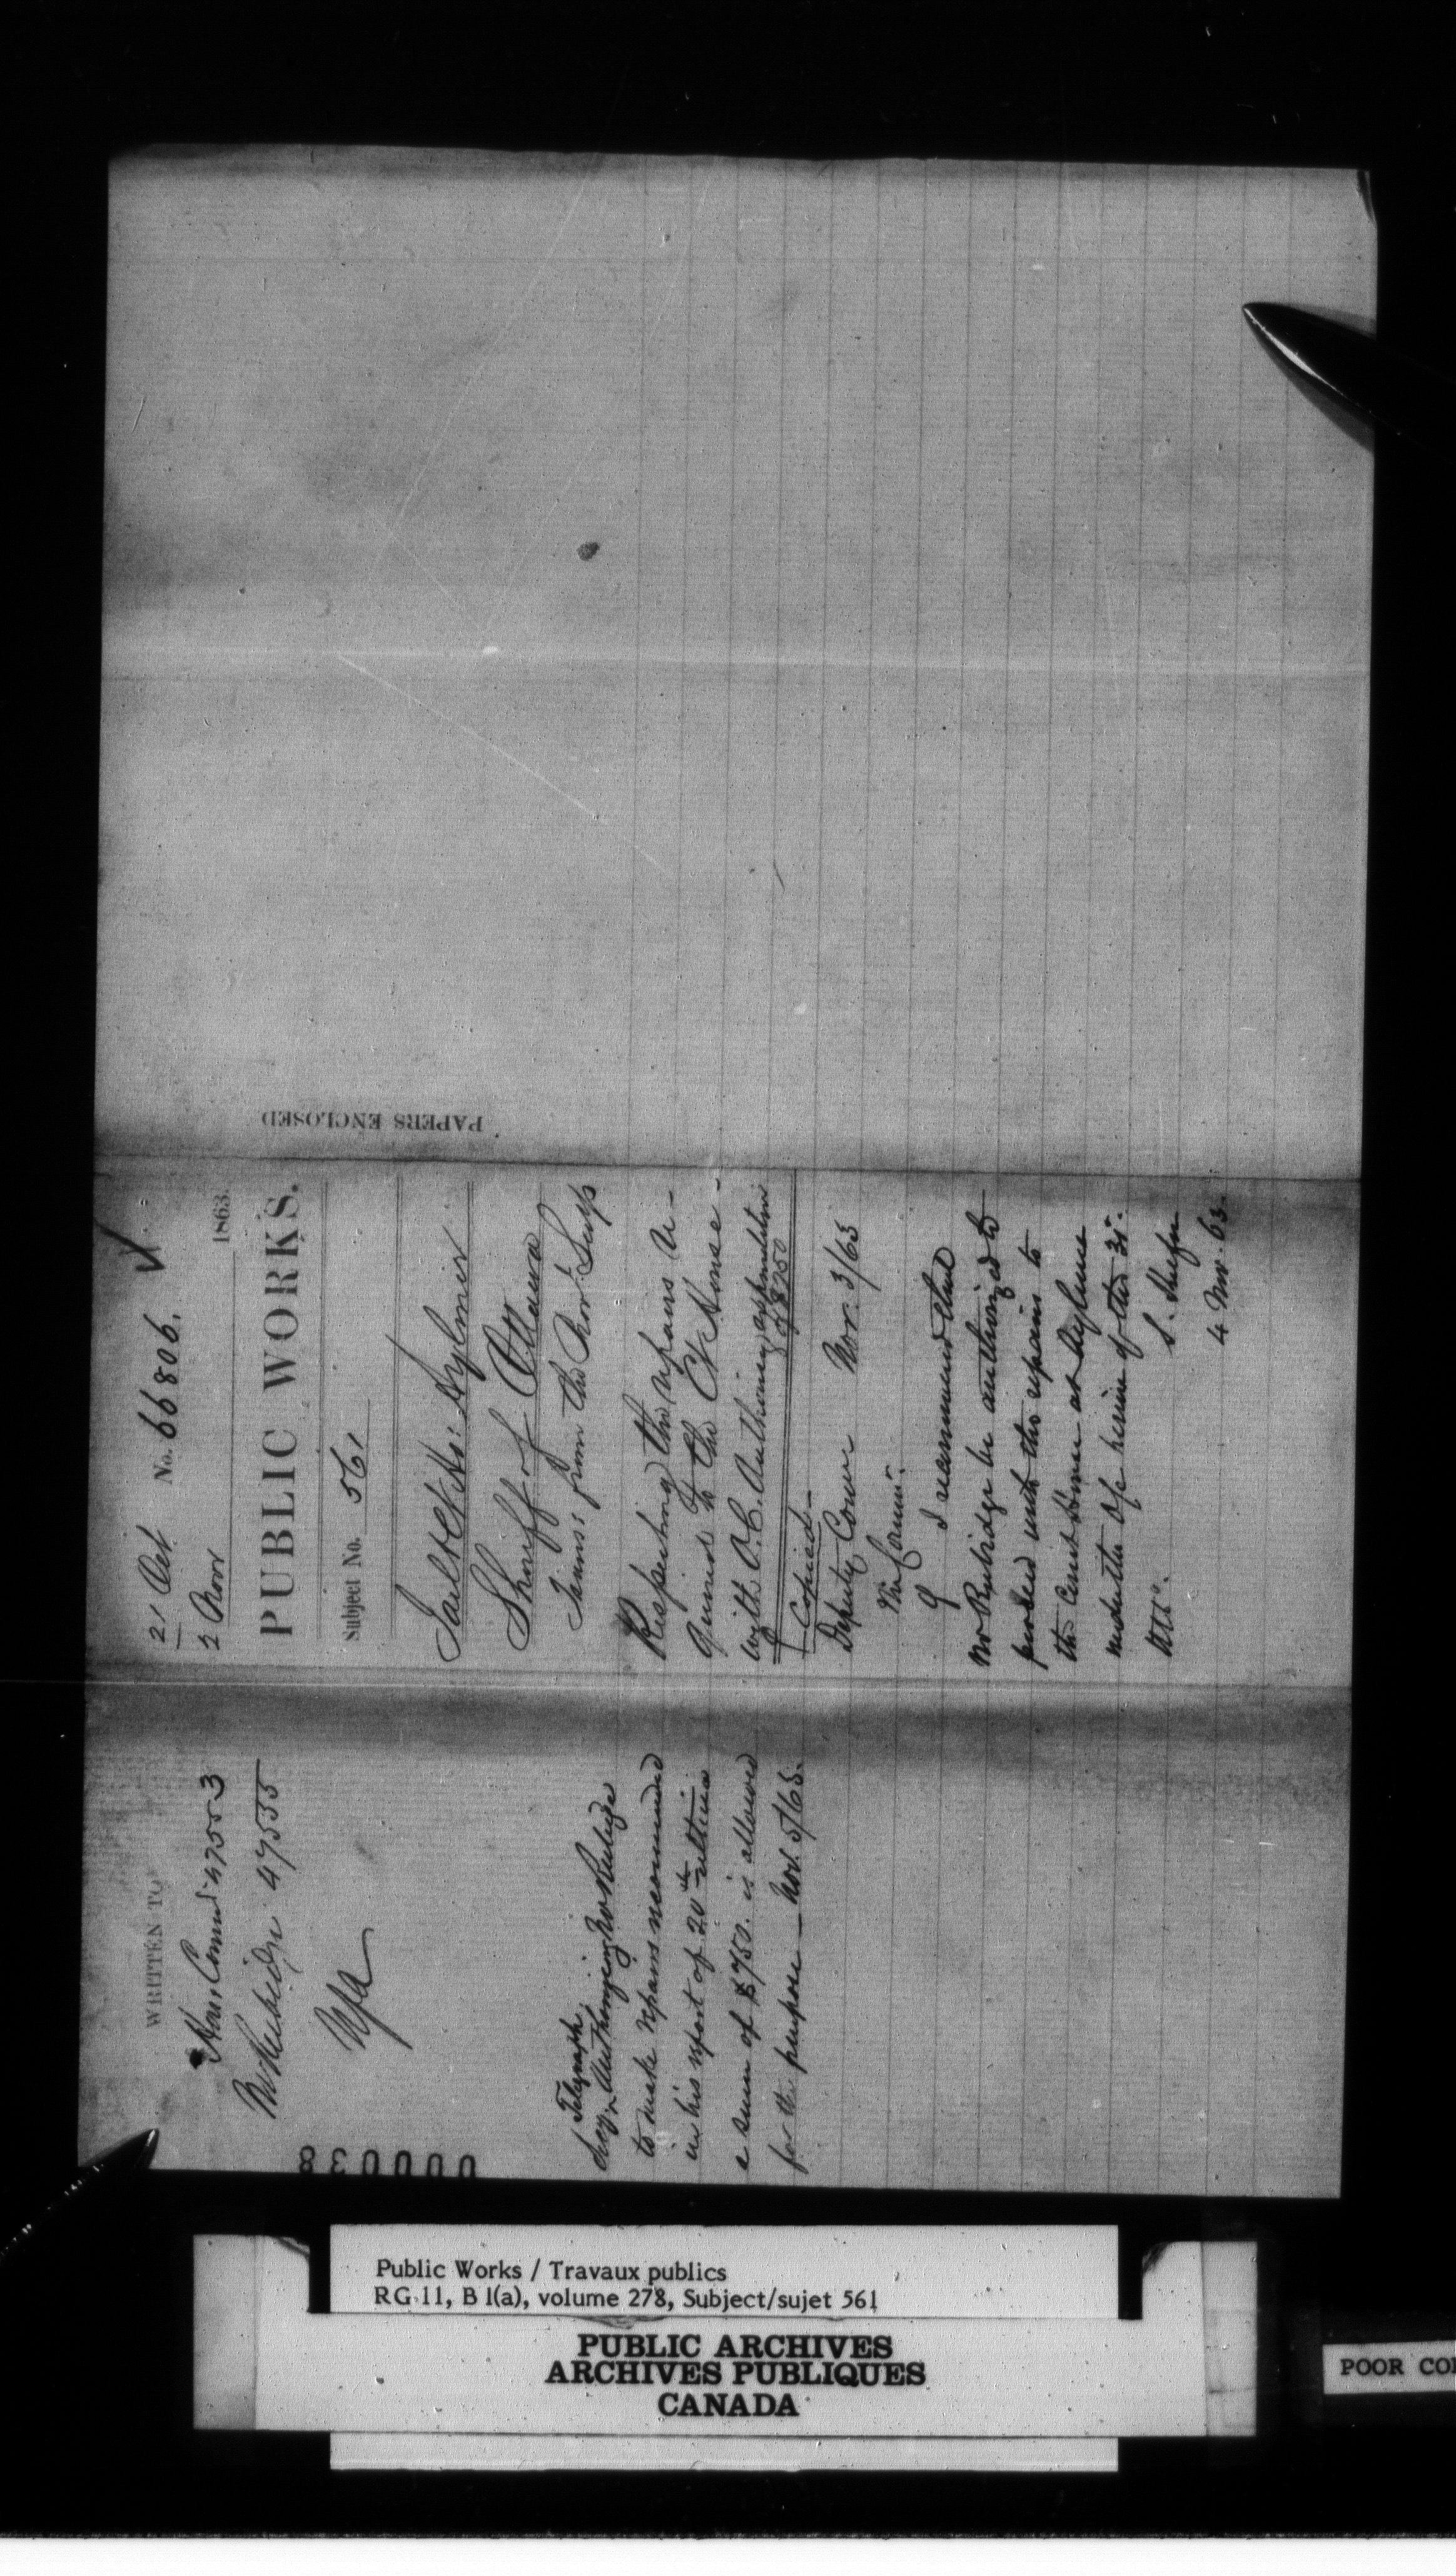 WRITTEN TO
Hon. Comr 47553
Mr Rubidge 47555
Telegraph
Authorizing Mr Rubidge
to make repairs recommended
in his report of 20th ultimo
a sum of $750. is allowed
for the purpose — Nov. 5/63.
000038
21 Oct No. 66806.
2 Nov 1863.
PUBLIC WORKS.
Subject No. 561
Jail & Ct Ho: Aylmer
Sheriff of Ottawa
Trans: from the Prov. Secy
Respecting the repairs re-
quired to the Ct House -
with O.C. authorizing expenditure
of $750
Copied
Deputy Comr Nov. 3/63
The Comr.
I recommend that
Mr Rubidge be authorized to
proceed with the repairs to
the Court House at Aylmer
under the O/C herein of the 31st.
Ulto.
4 Nov. 63.
PAPERS ENCLOSED
Public Works / Travaux publics
RG 11, B 1(a), volume 278, Subject/sujet 561
PUBLIC ARCHIVES
ARCHIVES PUBLIQUES
CANADA
POOR CO